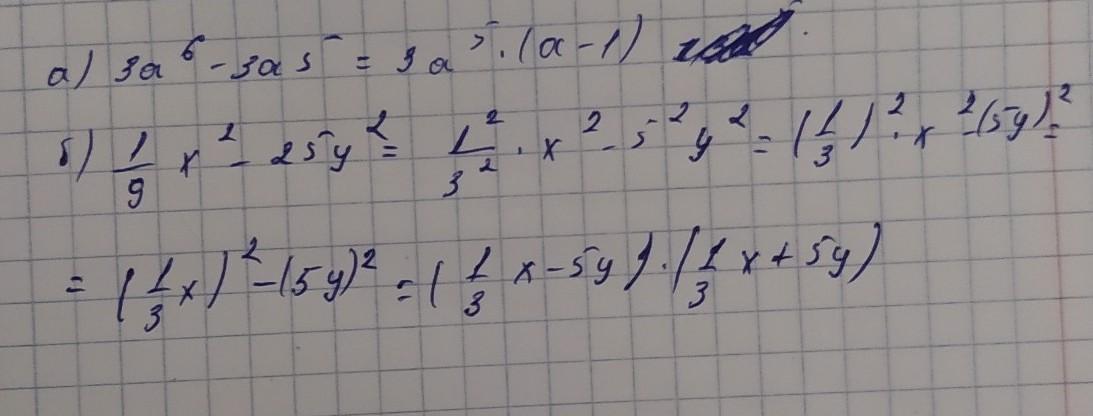 а) 3a⁶ - 3a⁵ = 3a⁵ · (a - 1)
б) 1/9 x² - 25y² = 1²/3² · x² - 5²y² = (1/3)² · x² - (5y)² =
= (1/3 x)² - (5y)² = (1/3 x - 5y) · (1/3 x + 5y)